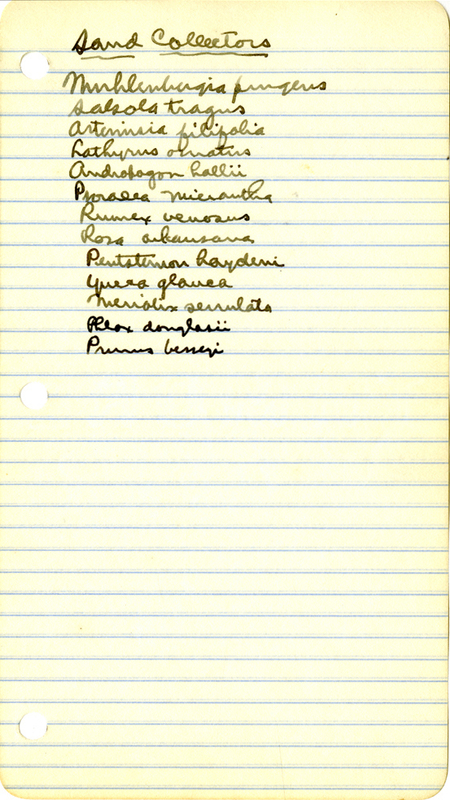 Sand Collectors
Muhlenbergia pungens
Salsola tragus
Artemisia filifolia
Lathyrus ornatus
Andropogon hallii
Psoralea micrantha
Rumex venosus
Rosa arkansana
Pentstemon haydeni
Yucca glauca
Meriolix serrulata
Phlox douglasii
Prunus besseyi